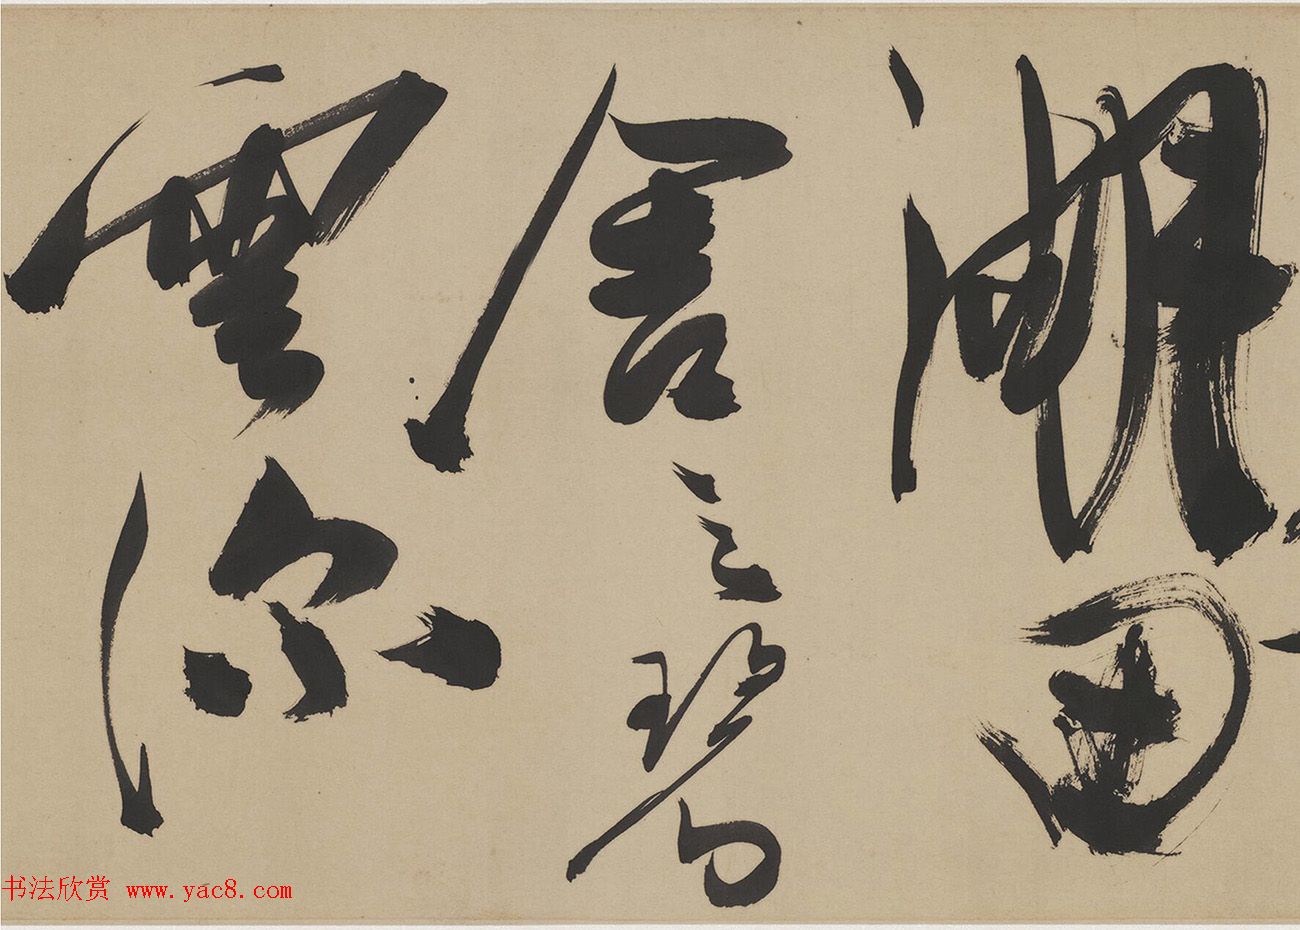 湖田
舍之碧
雲深
书法欣赏 www.yac8.com